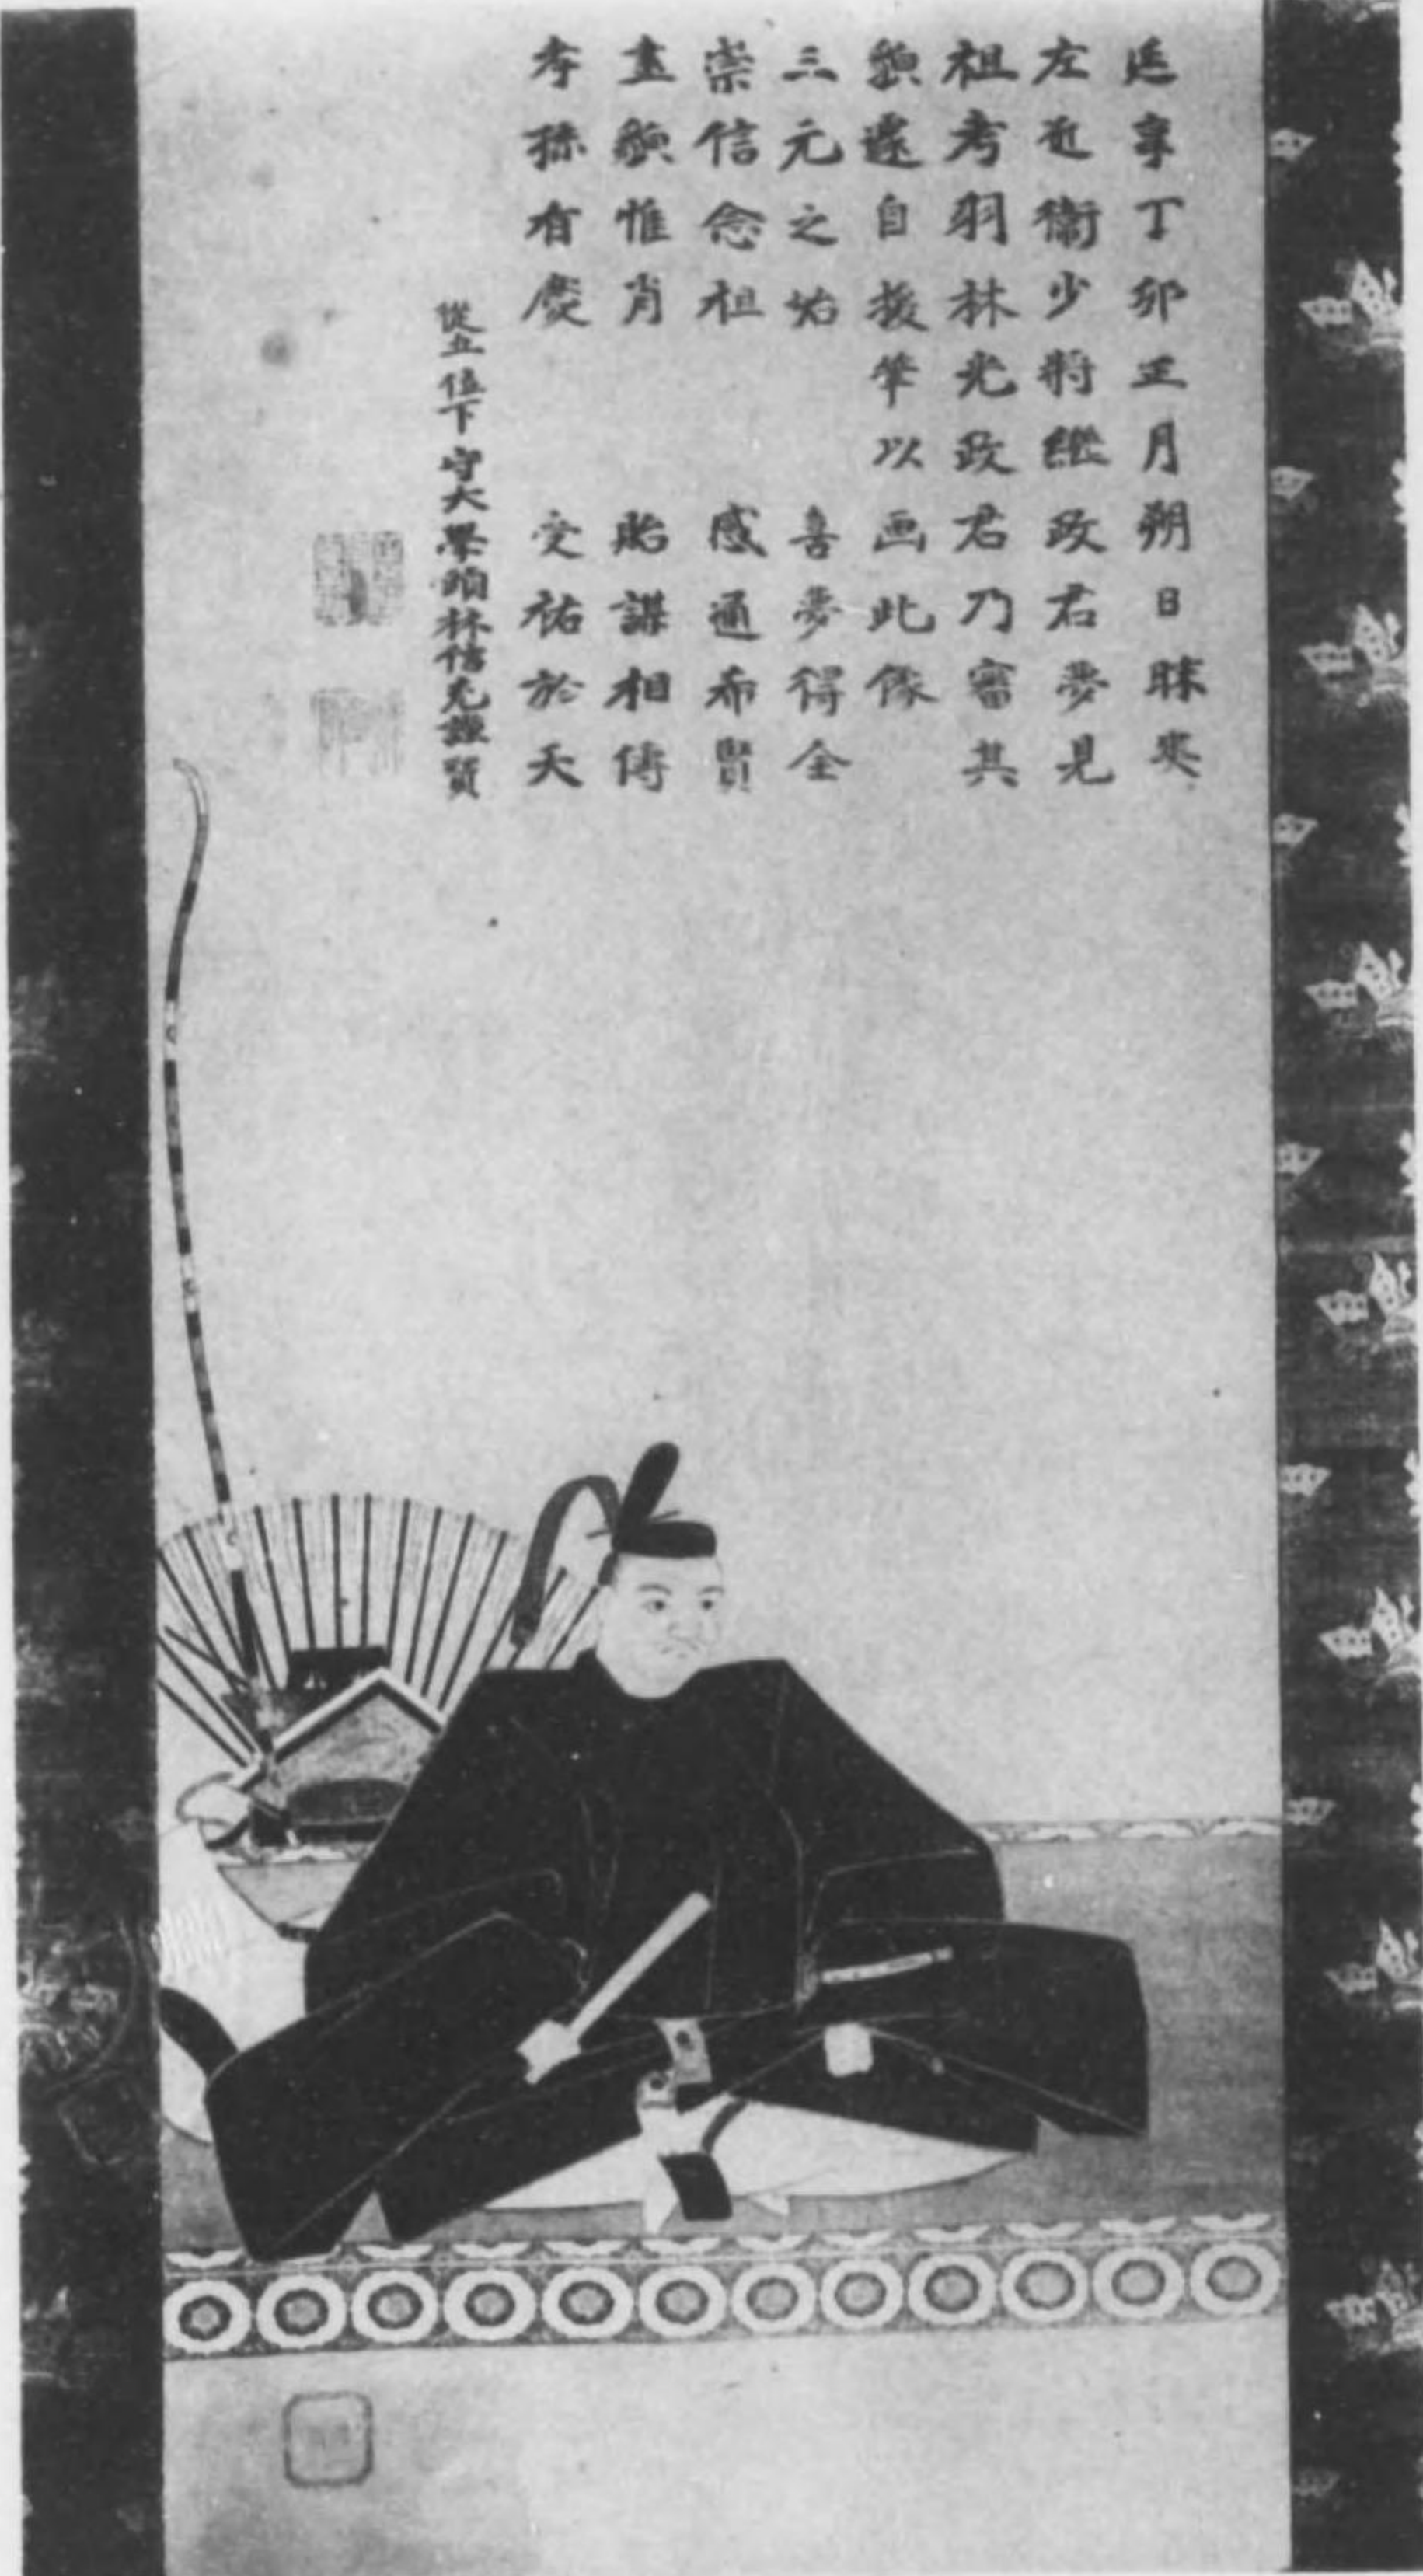 延享丁卯正月朔日昧爽
左近衛少將継政君夢見
祖考羽林光政君乃審其
貌遽自援筆以画此像
三元之始 喜夢得全
崇信念祖 感通希賢
畫貌惟肖 貽謀相傳
孝孫有慶 受祐於天
從五位下守大學頭林信充謹賛